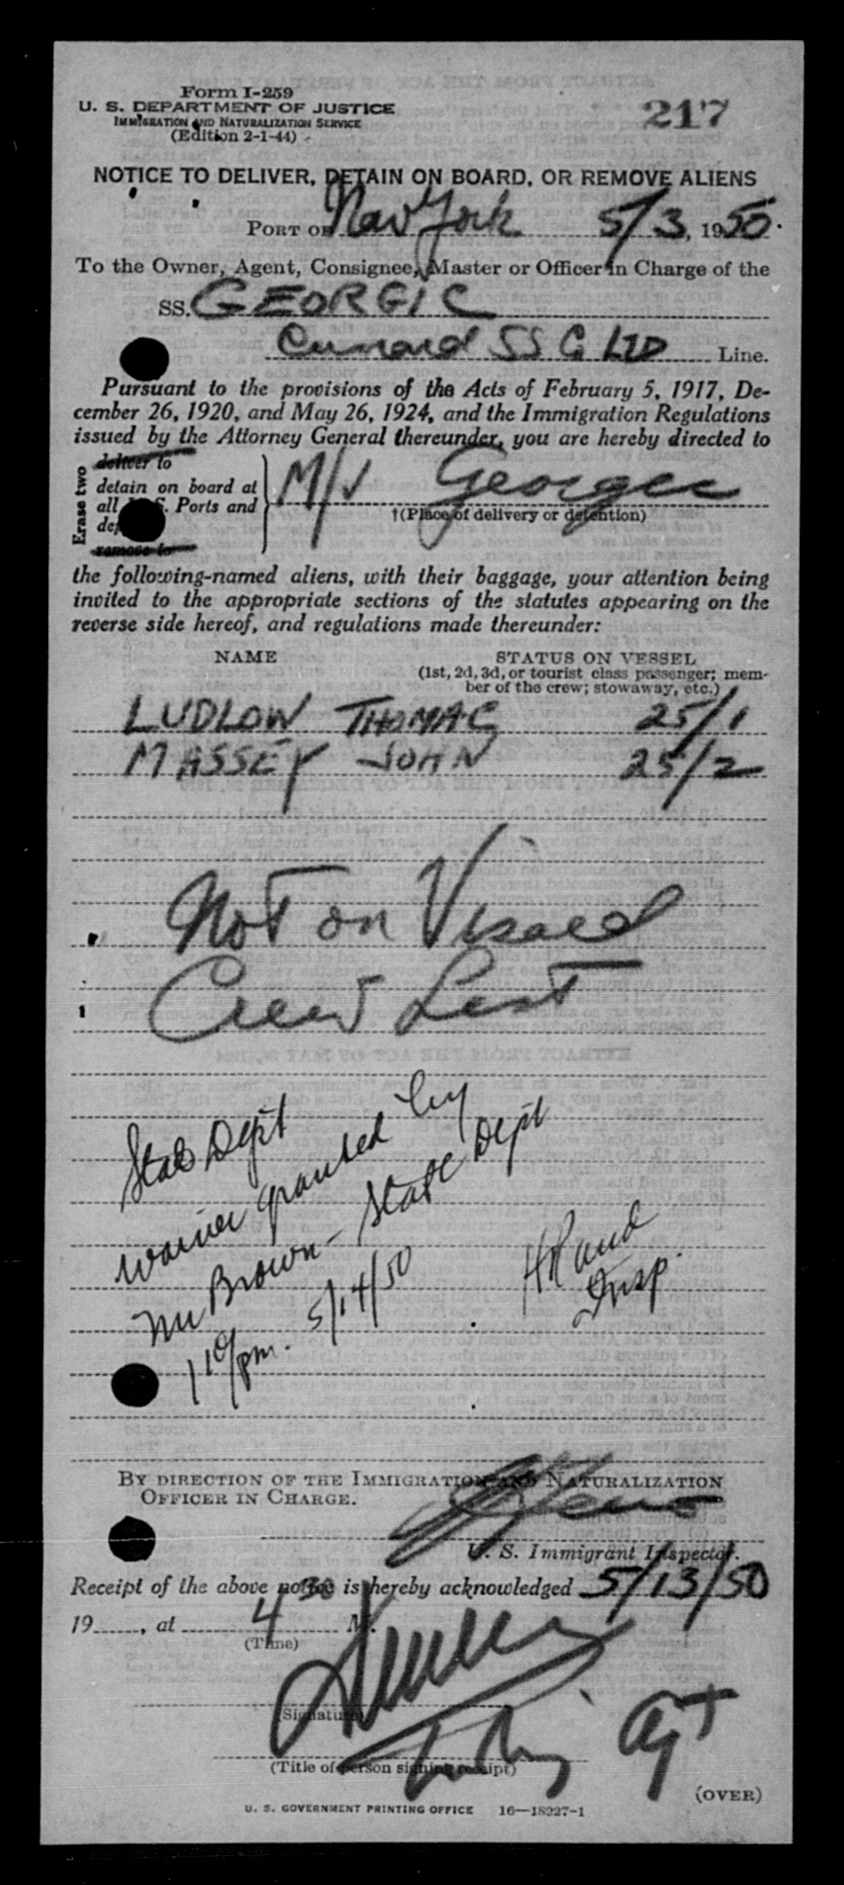 Form I-259
U. S. DEPARTMENT OF JUSTICE
IMMIGRATION AND NATURALIZATION SERVICE
(Edition 2-1-44)
217
NOTICE TO DELIVER, DETAIN ON BOARD, OR REMOVE ALIENS
PORT OF New York 5/3, 1950.
To the Owner, Agent, Consignee, Master or Officer in Charge of the
SS. GEORGIC
Cunard SS Co LTD Line.
Pursuant to the provisions of the Acts of February 5, 1917, De-
cember 26, 1920, and May 26, 1924, and the Immigration Regulations
issued by the Attorney General thereunder, you are hereby directed to
Erase two
deliver to
detain on board at
all U. S. Ports and
remove to
M/V Georgic
†(Place of delivery or detention)
the following-named aliens, with their baggage, your attention being
invited to the appropriate sections of the statutes appearing on the
reverse side hereof, and regulations made thereunder:
NAME STATUS ON VESSEL
(1st, 2d, 3d, or tourist class passenger; mem-
ber of the crew; stowaway, etc.)
LUDLOW THOMAS 25/1
MASSEY JOHN 25/2
Not on Visaed
Crew List
State Dept
waiver granted by
Mr Brown - State Dept
1 10/pm. 5/14/50
HRand
Insp.
BY DIRECTION OF THE IMMIGRATION AND NATURALIZATION
OFFICER IN CHARGE.
U. S. Immigrant Inspector.
Receipt of the above notice is hereby acknowledged 5/13/50
19____, at 4 30 M.
(Time)
(Signature)
Agt
(Title of person signing receipt)
(OVER)
U. S. GOVERNMENT PRINTING OFFICE 16—18227-1